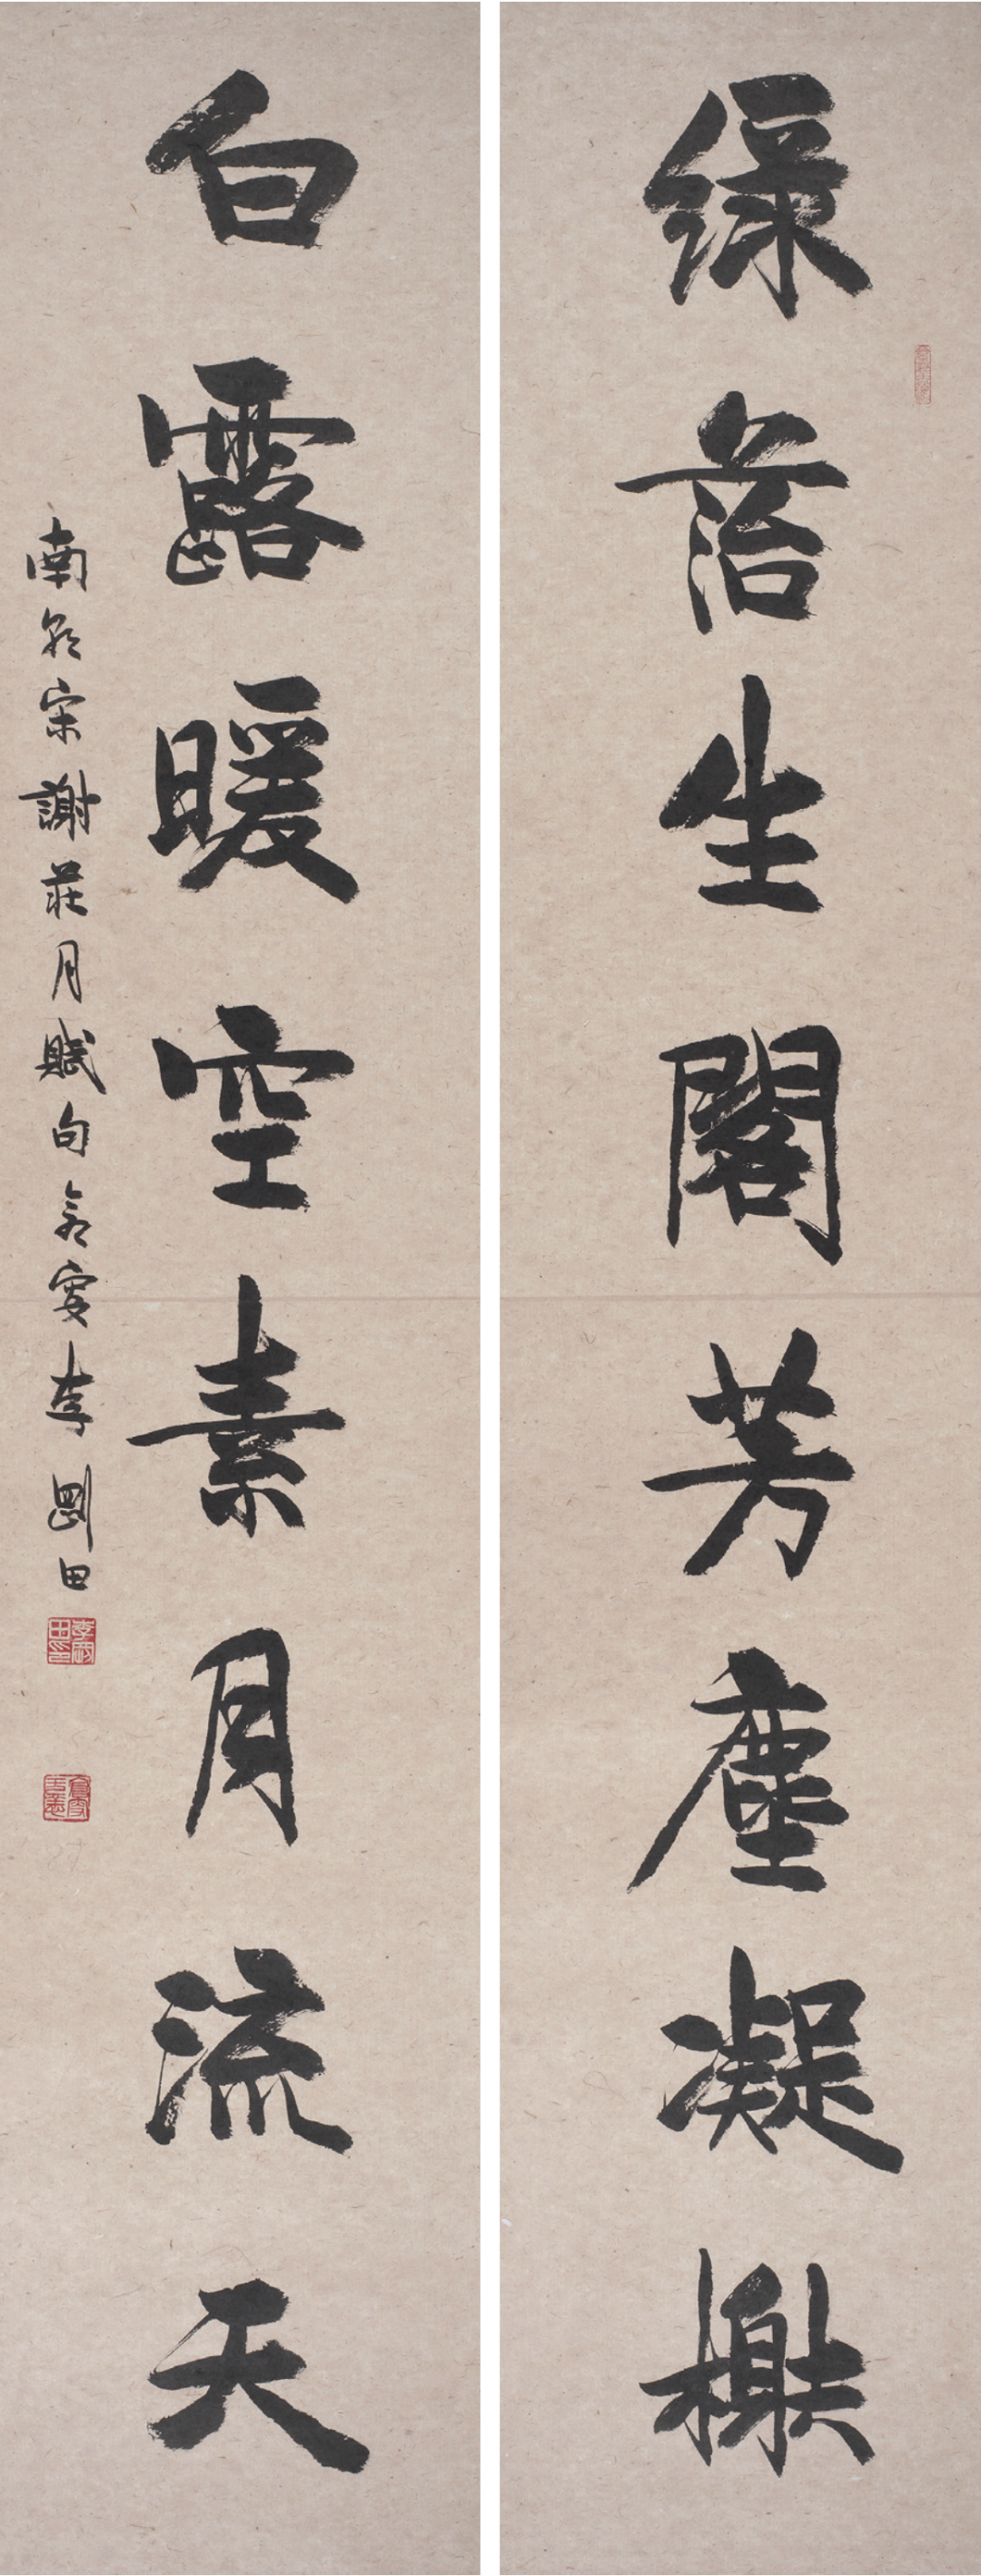 綠苔生閣芳塵凝榭
白露暖空素月流天
南朝宋謝莊月賦句 李剛田
李剛田印